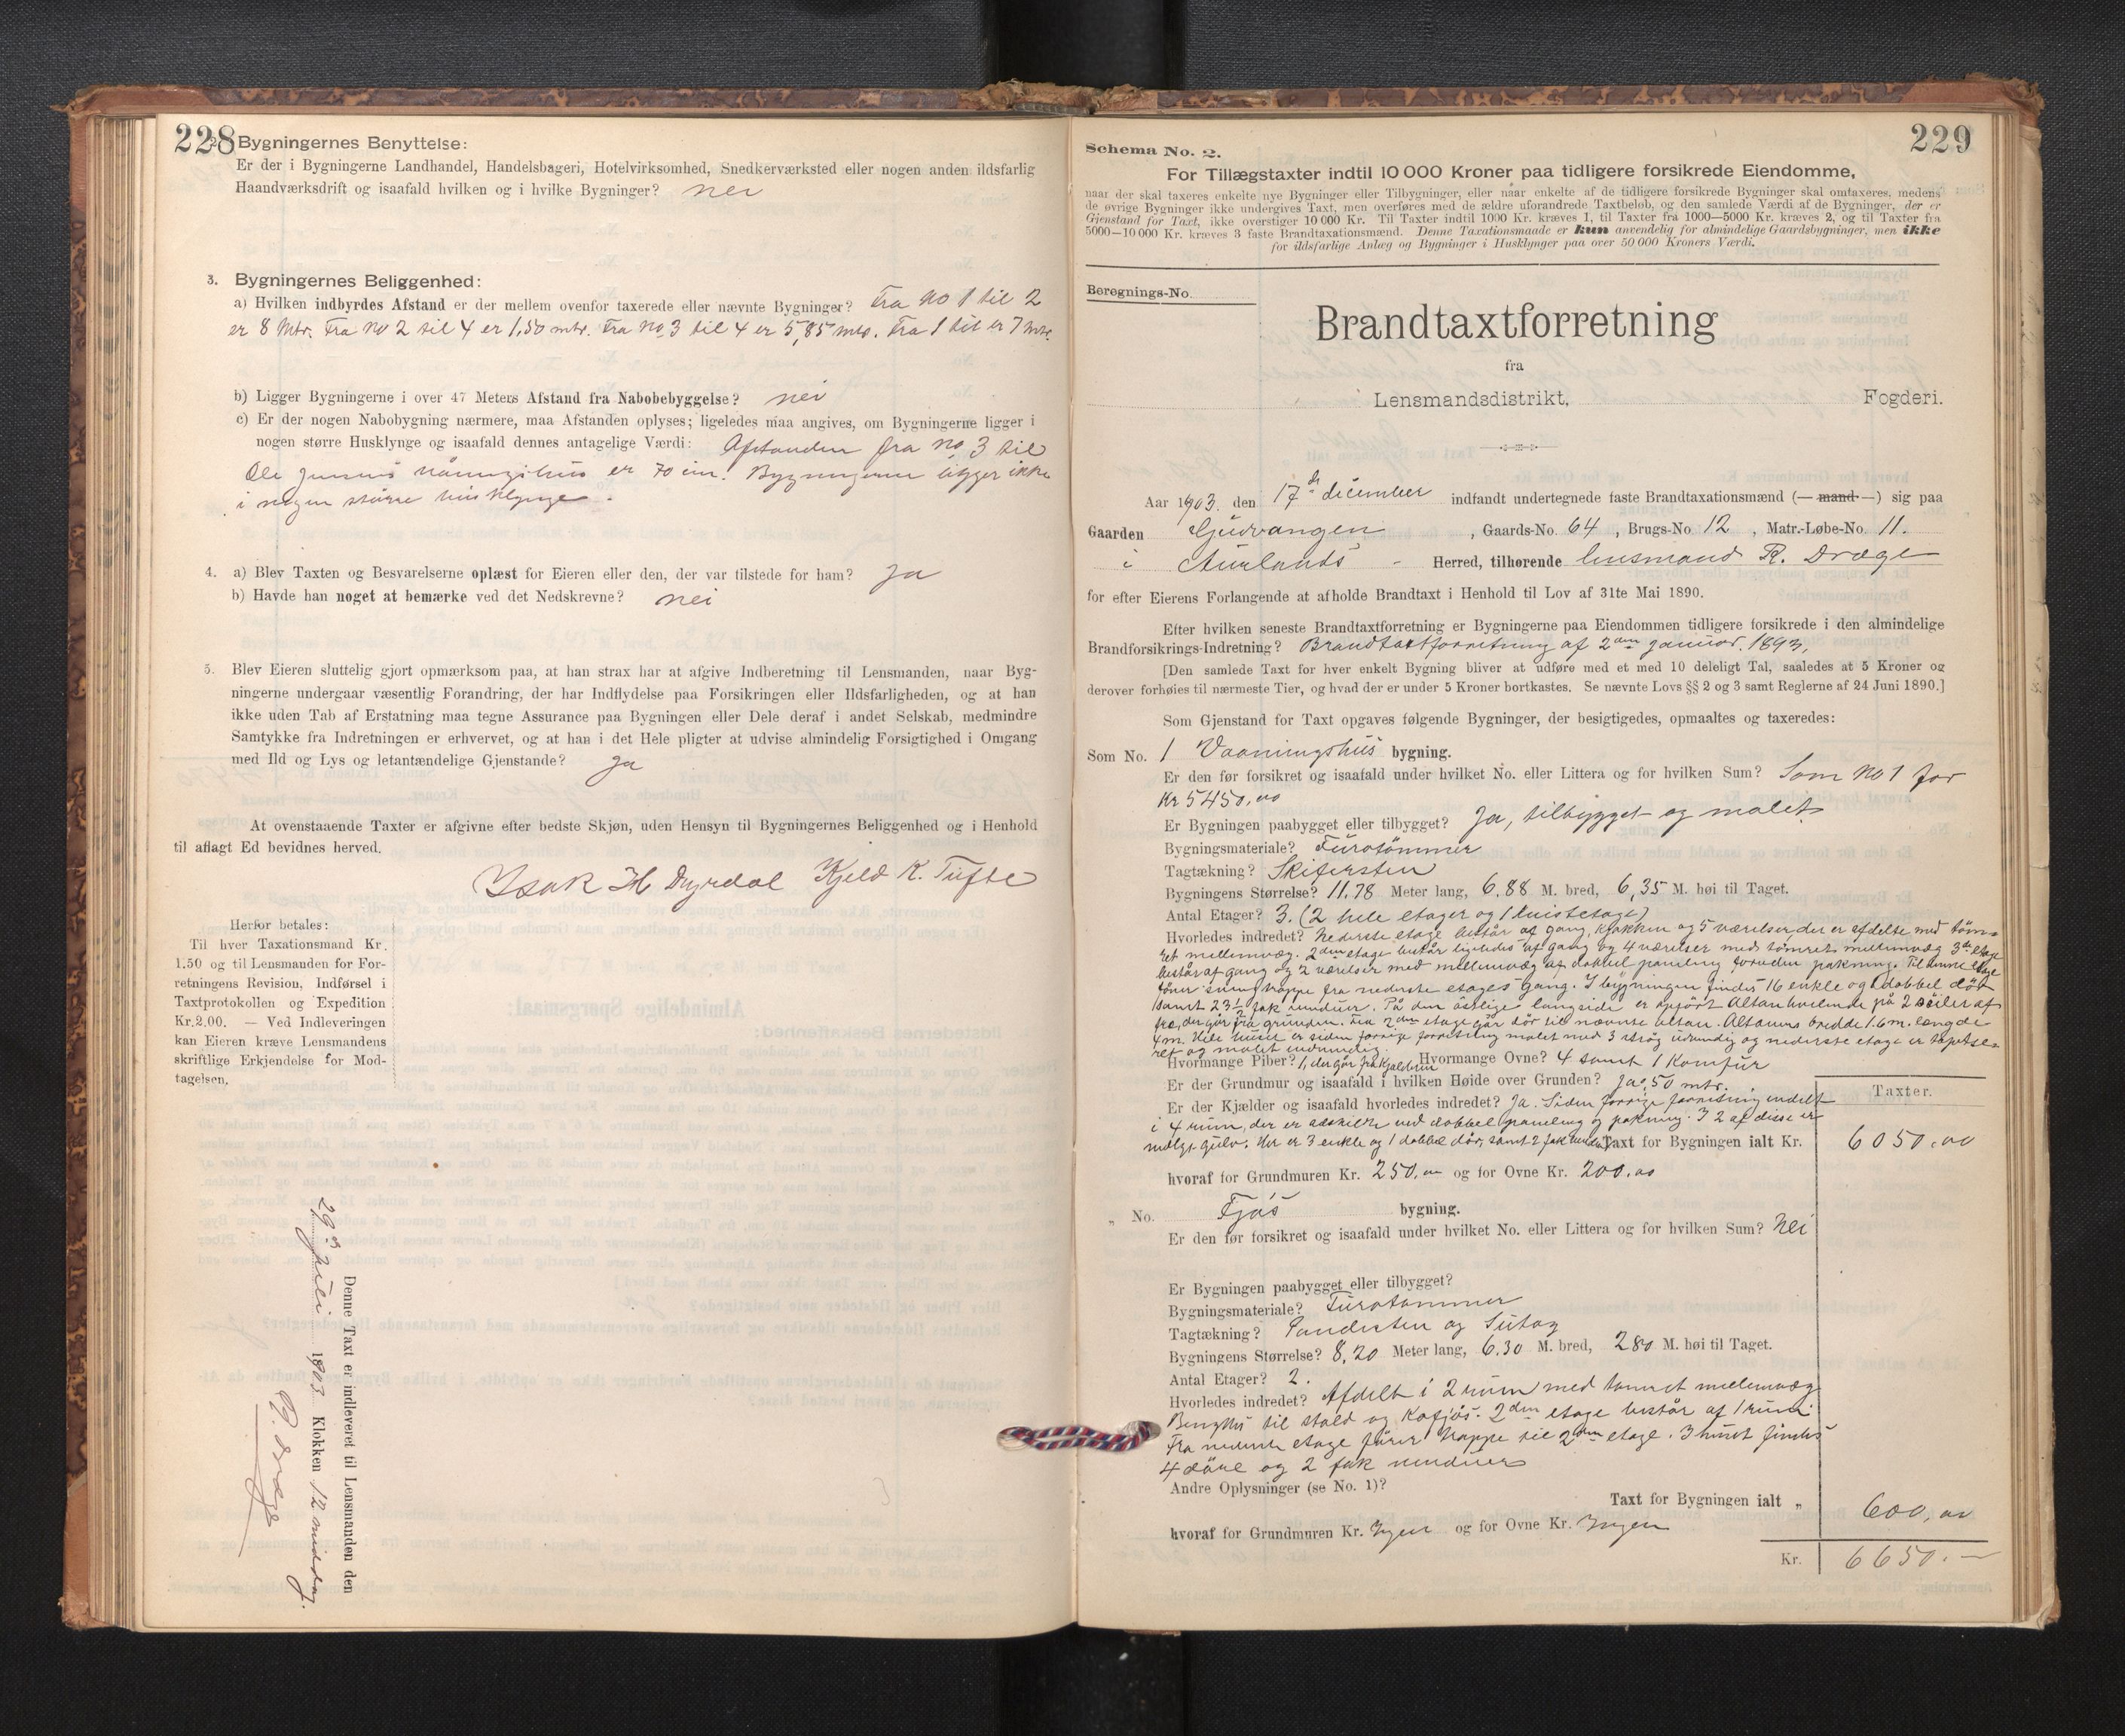 228
Bygningernes Benyttelse:
Er der i Bygningerne Landhandel, Handelsbageri, Hotelvirksomhed, Snedkerværksted eller nogen anden ildsfarlig
Haandværksdrift og isaafald hvilken og i hvilke Bygninger? nei
3. Bygningernes Beliggenhed:
a) Hvilken indbyrdes Afstand er der mellem ovenfor taxerede eller nævnte Bygninger? Fra No 1 til 2
er 8 Mtr. Fra No 2 til 4 er 1,50 mtr. Fra No 3 til 4 er 5,85 mtr. Fra 1 til er 7 mtr.
b) Ligger Bygningerne i over 47 Meters Afstand fra Nabobebyggelse? nei
c) Er der nogen Nabobygning nærmere, maa Afstanden oplyses; ligeledes maa angives, om Bygningerne ligger i
nogen større Husklynge og isaafald dennes antagelige Værdi: Afstanden fra No 3 til
Ole Jensens våningshus er 70 cm. Bygningerne ligger ikke
i nogen større husklynge.
4. a) Blev Taxten og Besvarelserne oplæst for Eieren eller den, der var tilstede for ham? Ja
b) Havde han noget at bemærke ved det Nedskrevne? nei
5. Blev Eieren sluttelig gjort opmærksom paa, at han strax har at afgive Indberetning til Lensmanden, naar Byg-
ningerne undergaar væsentlig Forandring, der har Indflydelse paa Forsikringen eller Ildsfarligheden, og at han
ikke uden Tab af Erstatning maa tegne Assurance paa Bygningen eller Dele deraf i andet Selskab, medmindre
Samtykke fra Indretningen er erhvervet, og at han i det Hele pligter at udvise almindelig Forsigtighed i Omgang
med Ild og Lys og letantændelige Gjenstande? Ja
At ovenstaaende Taxter er afgivne efter bedste Skjøn, uden Hensyn til Bygningernes Beliggenhed og i Henhold
til aflagt Ed bevidnes herved.
Isak H Dyrdal Kjeld K. Tufte
Herfor betales:
Til hver Taxationsmand Kr.
1.50 og til Lensmanden for For-
retningens Revision, Indførsel i
Taxtprotokollen og Expedition
Kr. 2.00. — Ved Indleveringen
kan Eieren kræve Lensmandens
skriftlige Erkjendelse for Mod-
tagelsen.
Denne Taxt er indleveret til Lensmanden den
29de Juli 1903 Klokken 12 middag.
R. Dræge
229
Schema No. 2.
For Tillægstaxter indtil 10 000 Kroner paa tidligere forsikrede Eiendomme,
naar der skal taxeres enkelte nye Bygninger eller Tilbygninger, eller naar enkelte af de tidligere forsikrede Bygninger skal omtaxeres, medens
de øvrige Bygninger ikke undergives Taxt, men overføres med de ældre uforandrede Taxtbeløb, og den samlede Værdi af de Bygninger, der er
Gjenstand for Taxt, ikke overstiger 10 000 Kr. Til Taxter indtil 1000 Kr. kræves 1, til Taxter fra 1000—5000 Kr. kræves 2, og til Taxter fra
5000—10 000 Kr. kræves 3 faste Brandtaxationsmænd. Denne Taxationsmaade er kun anvendelig for almindelige Gaardsbygninger, men ikke
for ildsfarlige Anlæg og Bygninger i Husklynger paa over 50 000 Kroners Værdi.
Beregnings-No.
Brandtaxtforretning
fra
Lensmandsdistrikt, Fogderi.
Aar 1903. den 17de december indfandt undertegnede faste Brandtaxationsmænd (— mand —) sig paa
Gaarden Gjudvangen, Gaards-No. 64, Brugs-No. 12, Matr.-Løbe-No. 11.
i Aurlands Herred, tilhørende lensmand R. Dræge
for efter Eierens Forlangende at afholde Brandtaxt i Henhold til Lov af 31te Mai 1890.
Efter hvilken seneste Brandtaxtforretning er Bygningerne paa Eiendommen tidligere forsikrede i den almindelige
Brandforsikrings-Indretning? Brandtaxtforretning af 2den januar. 1893.
[Den samlede Taxt for hver enkelt Bygning bliver at udføre med et med 10 deleligt Tal, saaledes at 5 Kroner og
derover forhøies til nærmeste Tier, og hvad der er under 5 Kroner bortkastes. Se nævnte Lovs §§ 2 og 3 samt Reglerne af 24 Juni 1890.]
Som Gjenstand for Taxt opgaves følgende Bygninger, der besigtigedes, opmaaltes og taxeredes:
Som No. 1 Vaaningshus bygning.
Er den før forsikret og isaafald under hvilket No. eller Littera og for hvilken Sum? Som No 1 for
Kr 5450,00
Er Bygningen paabygget eller tilbygget? Ja, tilbygget og malet
Bygningsmateriale? Furutømmer
Tagtækning? Skifersten
Bygningens Størrelse? 11,78 Meter lang, 6,88 M. bred, 6,35 M. høi til Taget.
Antal Etager? 3. (2 hele etager og 1 kvistetage)
Hvorledes indredet? Nederste etage består af gang, kjøkken og 5 værelser, der er afdelte med tøm-
ret mellemvæg. 2den etage består ligeledes af gang og 4 værelser med tømret mellemvæg. 3die etage
består af gang og 2 værelser med mellemvæg af dobbel paneling foruden pakning. Til denne etage
fører trappe fra nederste etages gang. I bygningen findes 16 enkle og 1 dobbel dør
samt 23 1/2 fak vinduer. På den østlige langside er opført Altan hvilende på 2 søiler af
træ, der går fra grunden. Fra 2den etage går dør til nævnte altan. Altanens bredde 1.6 m. længde
4 m. Hele huset er siden forrige forretning malet med 3 strøg udvendig og nederste etage er tapetse-
ret og malet indvendig.
Hvormange Piber? 1, der går fra kjælderen Hvormange Ovne? 4 samt 1 komfur
Er der Grundmur og isaafald i hvilken Høide over Grunden? Ja 0,50 mtr.
Er der Kjælder og isaafald hvorledes indredet? Ja. Siden forrige forretning indelt
i 4 rum, der er adskilte ved dobbel paneling og pakning. I 2 af disse er
indlagt gulv. Her er 3 enkle og 1 dobbel dør, samt 2 fak vinduer
Taxter.
Taxt for Bygningen ialt Kr. 6050,00
hvoraf for Grundmuren Kr. 250,00 og for Ovne Kr. 200,00
„ No. Fjøs bygning.
Er den før forsikret og isaafald under hvilket No. eller Littera og for hvilken Sum? Nei
Er Bygningen paabygget eller tilbygget?
Bygningsmateriale? Furutømmer
Tagtækning? Pandesten og
Bygningens Størrelse? 8,20 Meter lang, 6.30 M. bred, 280 M. høi til Taget.
Antal Etager? 2.
Hvorledes indredet? Afdelt i 2 rum med tømret mellemvæg
Benyttes til stald og kofjøs. 2den etage består af 1 rum
Fra nederste etage fører trappe til 2den etage. I huset findes
4 døre og 2 fak vinduer
Andre Oplysninger (se No. 1)?
Taxt for Bygningen ialt „ 600,00
hvoraf for Grundmuren Kr. Ingen og for Ovne Kr. Ingen
Kr. 6650.—